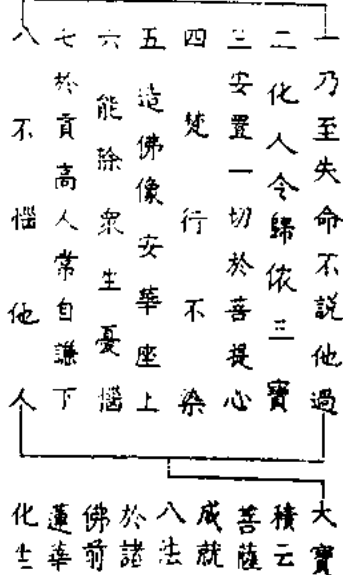 一乃至失命不説他過
二化人令歸依三寶
三安置一切於菩提心
四梵行不染
五造佛像安華座上
六能除衆生憂惱
七於貢高人常自謙下
八不惱他人
大寶
積云
菩薩
成就
八法
於諸
佛前
蓮華
化生